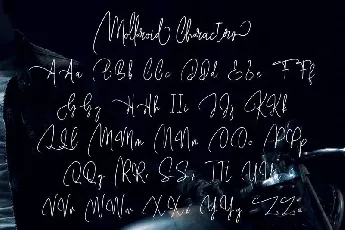 Molteroid Characters
A A a B B b C C c D D d E E e F F f
G G g H H h I I i J J j K K k
L L l M M m N N n O O o P P p
Q Q q R R r S S s T T t U U u
V V v W W w X X x Y Y y Z Z z